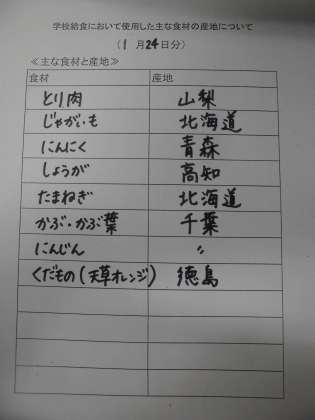 学校給食において使用した主な食材の産地について
(1月24日分)
≪主な食材と産地≫
食材 産地
とり肉 山梨
じゃがいも 北海道
にんにく 青森
しょうが 高知
たまねぎ 北海道
かぶ・かぶ葉 千葉
にんじん 〃
くだもの(天草オレンジ) 徳島